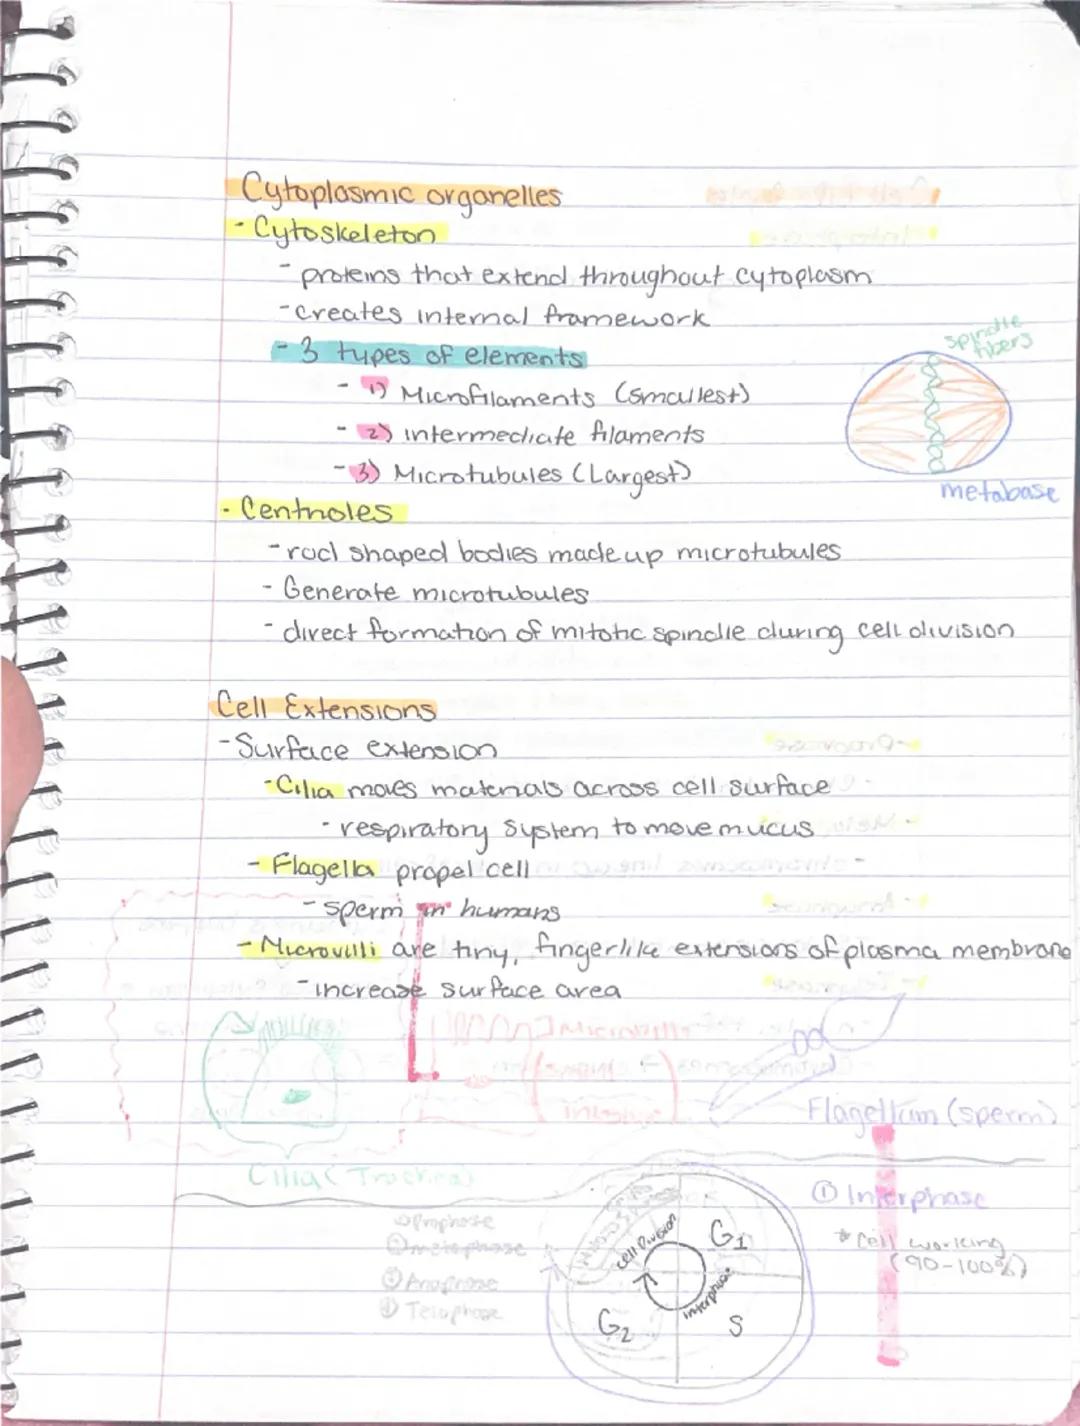 Cytoplasmic organelles
- Cytoskeleton
- proteins that extend throughout cytoplasm
- creates internal framework
- 3 types of elements
- 1) Microfilaments (smallest)
- 2) intermediate filaments
- 3) Microtubules (Largest)
spindle
fibers
metabase
- Centrioles
- rod shaped bodies made up microtubules
- Generate microtubules
- direct formation of mitotic spindle during cell division
Cell Extensions
- Surface extension
- Cilia moves materials across cell surface
- respiratory system to move mucus
- Flagella propel cell
- sperm in humans
- Microvilli are tiny, fingerlike extensions of plasma membrane
- increase surface area
Microvilli
Flagellum (sperm)
Cilia (Trachea)
① Prophase
② metaphase
③ Anaphase
④ Telophase
Cell Division
G1
Interphase
G2
S
① Interphase
* Cell working
(90-100%)